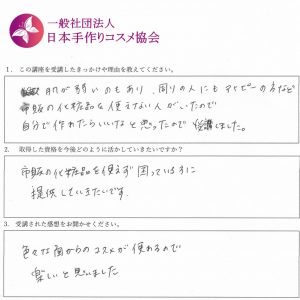 一般社団法人
日本手作りコスメ協会
1. この講座を受講したきっかけや理由を教えてください。
肌が弱いのもあり、周りの人にもアトピーの方など
市販の化粧品を使えない人がいたので
自分で作れたらいいなと思ったので 受講しました。
2. 取得した資格を今後どのように活かしていきたいですか?
市販の化粧品を使えず困っている方に
提供していきたいです。
3. 受講された感想をお聞かせください。
色々な面からのコスメが作れるので
楽しいと思いました